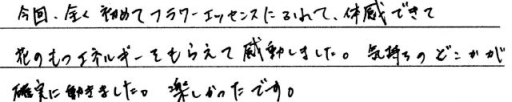 今回、全く初めてフラワーエッセンスにふれて、体感できて
花のもつエネルギーをもらえて感動しました。気持ちのどこかが
確実に動きました。楽しかったです。